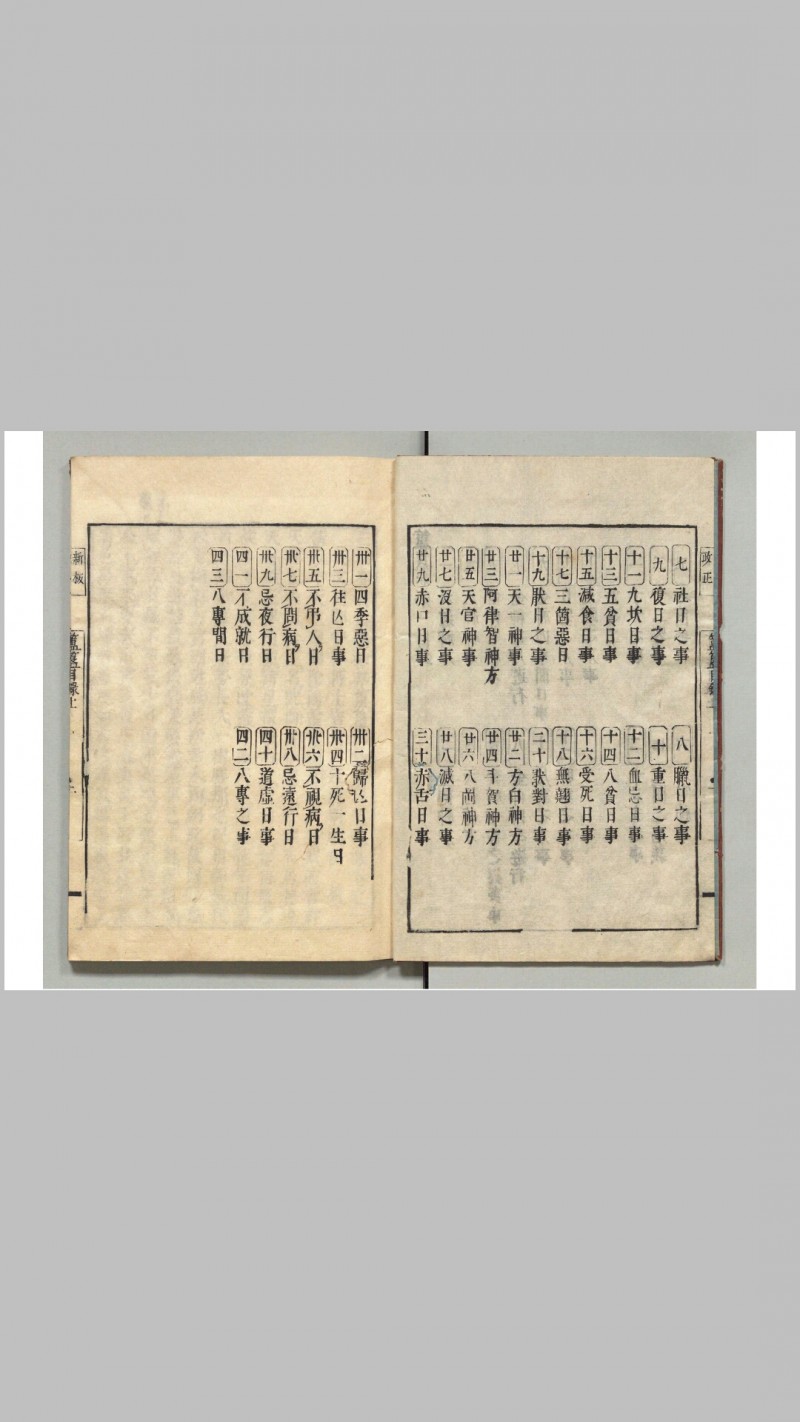 改正
七 社日之事
八 臘日之事
九 復日之事
十 重日之事
十一 九坎日事
十二 血忌日事
十三 五貧日事
十四 八貧日事
十五 滅食日事
十六 受死日事
十七 三箇惡日
十八 無翹日事
十九 厭日之事
二十 厭對日事
廿一 天一神事
廿二 方白神方
廿三 阿律智神方
廿四 千賀神方
廿五 天官神事
廿六 八
廿七 没日之事
廿八 滅日之事
廿九 赤口日事
三十 赤舌日事
卅一 四季惡日
卅二 歸亡日事
卅三 往亡日事
卅四 十死一生日
卅五 不弔人日
卅六 不視病日
卅七 不問病日
卅八 忌遠行日
卅九 忌夜行日
四十 道虚日事
四一 不成就日
四二 八專之事
四三 八專間日
新板
簠簋目録上